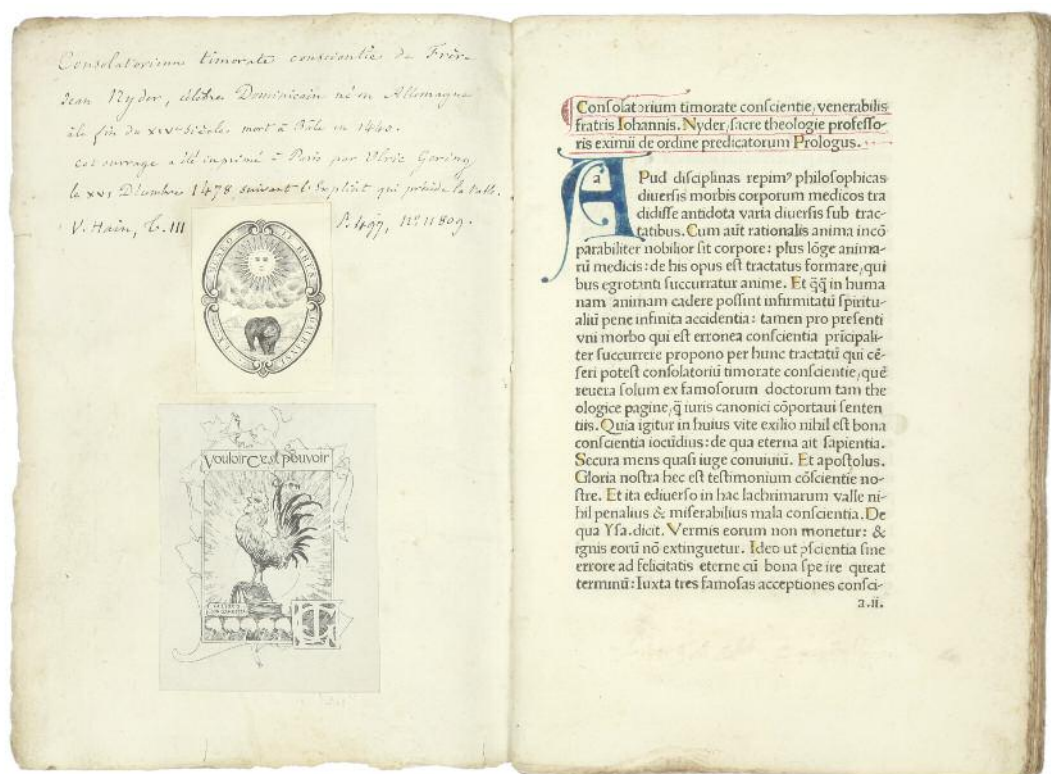 Consolatorium timorate conscientie de Frère
Jean Nyder, célèbre Dominicain né en Allemagne
à la fin du XIVe Siècle, mort à Bâle en 1440.
cet ouvrage a été imprimé à Paris par Ulric Gering
le XVI Décembre 1478, suivant l'Explicit qui précède la table.
V. Hain, t. III P. 497, no. 11809.
Vouloir C'est pouvoir
Conſolatorium timorate conſcientie, venerabilis
fratris Iohannis. Nyder, ſacre theologie profeſſo-
ris eximii de ordine predicatorum Prologus.
a
APud diſciplinas repimꝰ philoſophicas
diuerſis morbis corporum medicos tra
didiſſe antidota varia diuerſis ſub trac-
tatibus. Cum aūt rationalis anima incō
parabiliter nobilior ſit corpore: plus lōge anima-
rū medicis: de his opus eſt tractatus formare, qui
bus egrotanti ſuccurratur anime. Et q̄q̄ in huma
nam animam cadere poſſint infirmitatū ſpiritu-
aliū pene infinita accidentia: tamen pro preſenti
vni morbo qui eſt erronea conſcientia prīcipali-
ter ſuccurrere propono per hunc tractatū qui cē-
ſeri poteſt conſolatoriū timorate conſcientie, quē
reuera ſolum ex famoſorum doctorum tam the
ologice pagine, q̄ iuris canonici cōportaui ſenten
tiis. Quia igitur in huius vite exilio nihil eſt bona
conſcientia iocūdius: de qua eterna ait ſapientia.
Secura mens quaſi iuge conuiuiū. Et apoſtolus.
Gloria noſtra hec eſt teſtimonium cōſcientie no-
ſtre. Et ita ediuerſo in hac lachrimarum valle ni-
hil penalius & miſerabilius mala conſcientia. De
qua Yſa. dicit. Vermis eorum non monetur: &
ignis eorū nō extinguetur. Ideo ut ꝯſcientia ſine
errore ad felicitatis eterne cū bona ſpe ire queat
terminū: Iuxta tres famoſas acceptiones conſci-
a.ii.